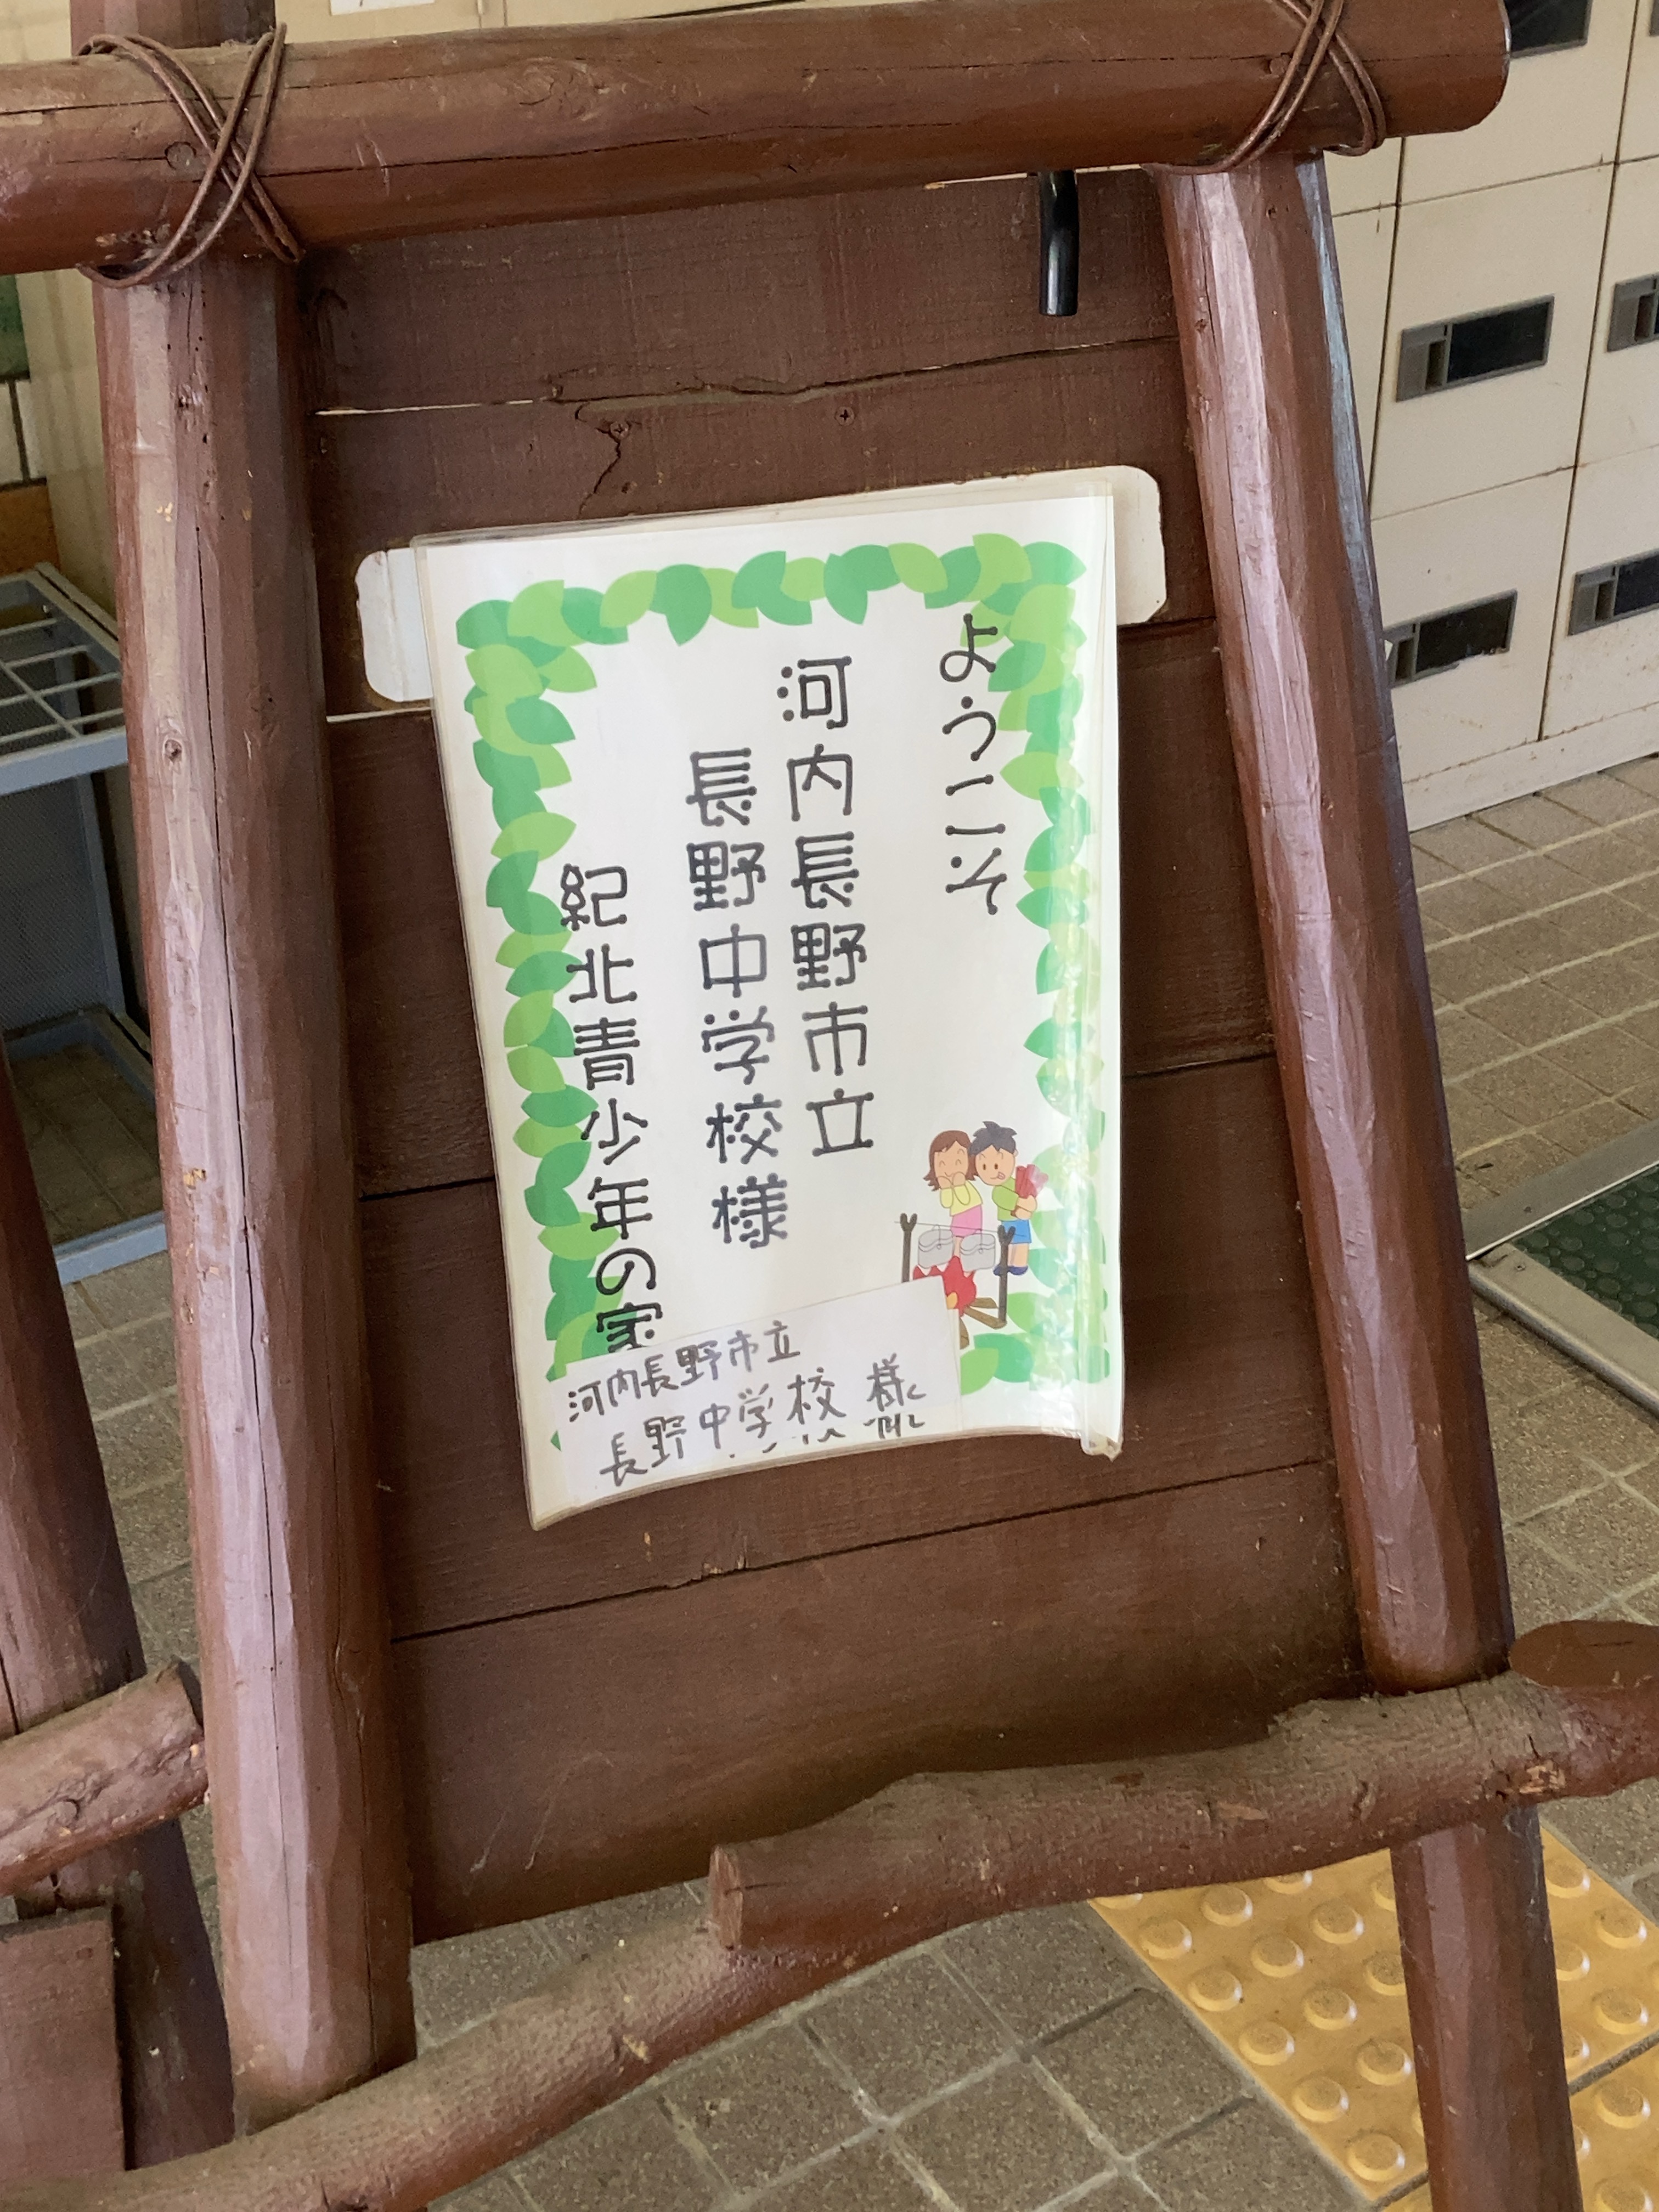 ようこそ
河内長野市立
長野中学校様
紀北青少年の家
河内長野市立
長野中学校 様